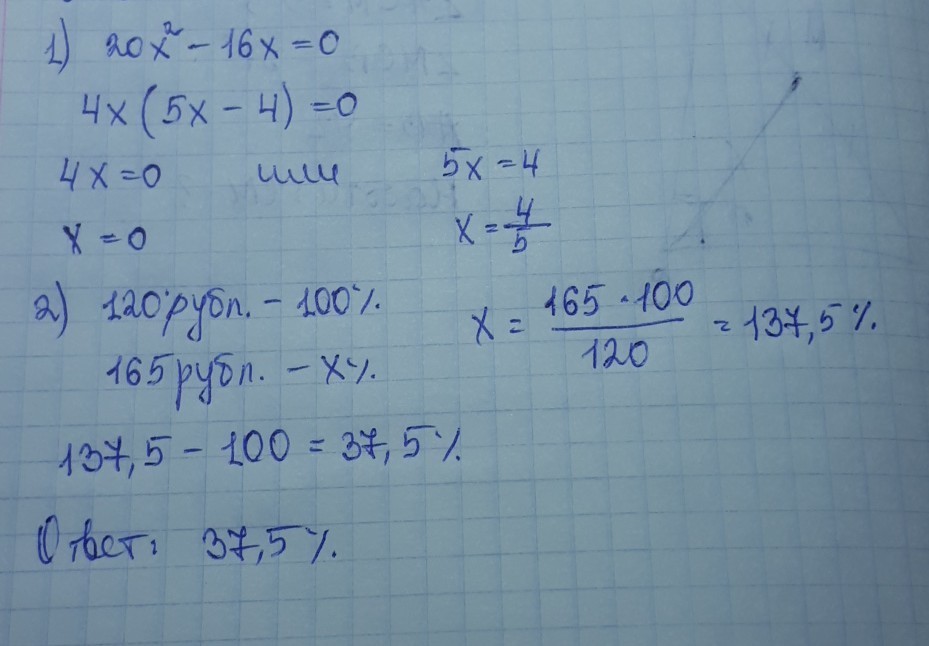 1) 20x² - 16x = 0
4x (5x - 4) = 0
4x = 0 или 5x = 4
x = 0 x = 4/5
2) 120 рубл. - 100%
165 рубл. - x%
x = (165 · 100)/120 = 137,5%
137,5 - 100 = 37,5%
Ответ: 37,5%.